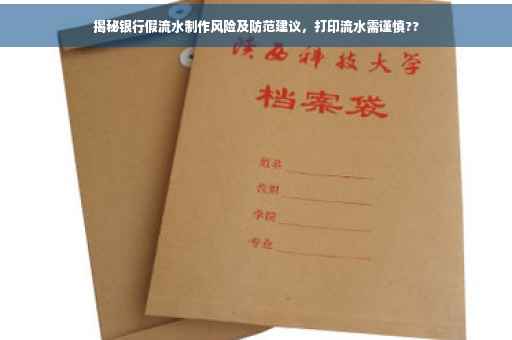 揭秘银行假流水制作风险及防范建议，打印流水需谨慎??
陕西科技大学
档案袋
姓名
学院
专业